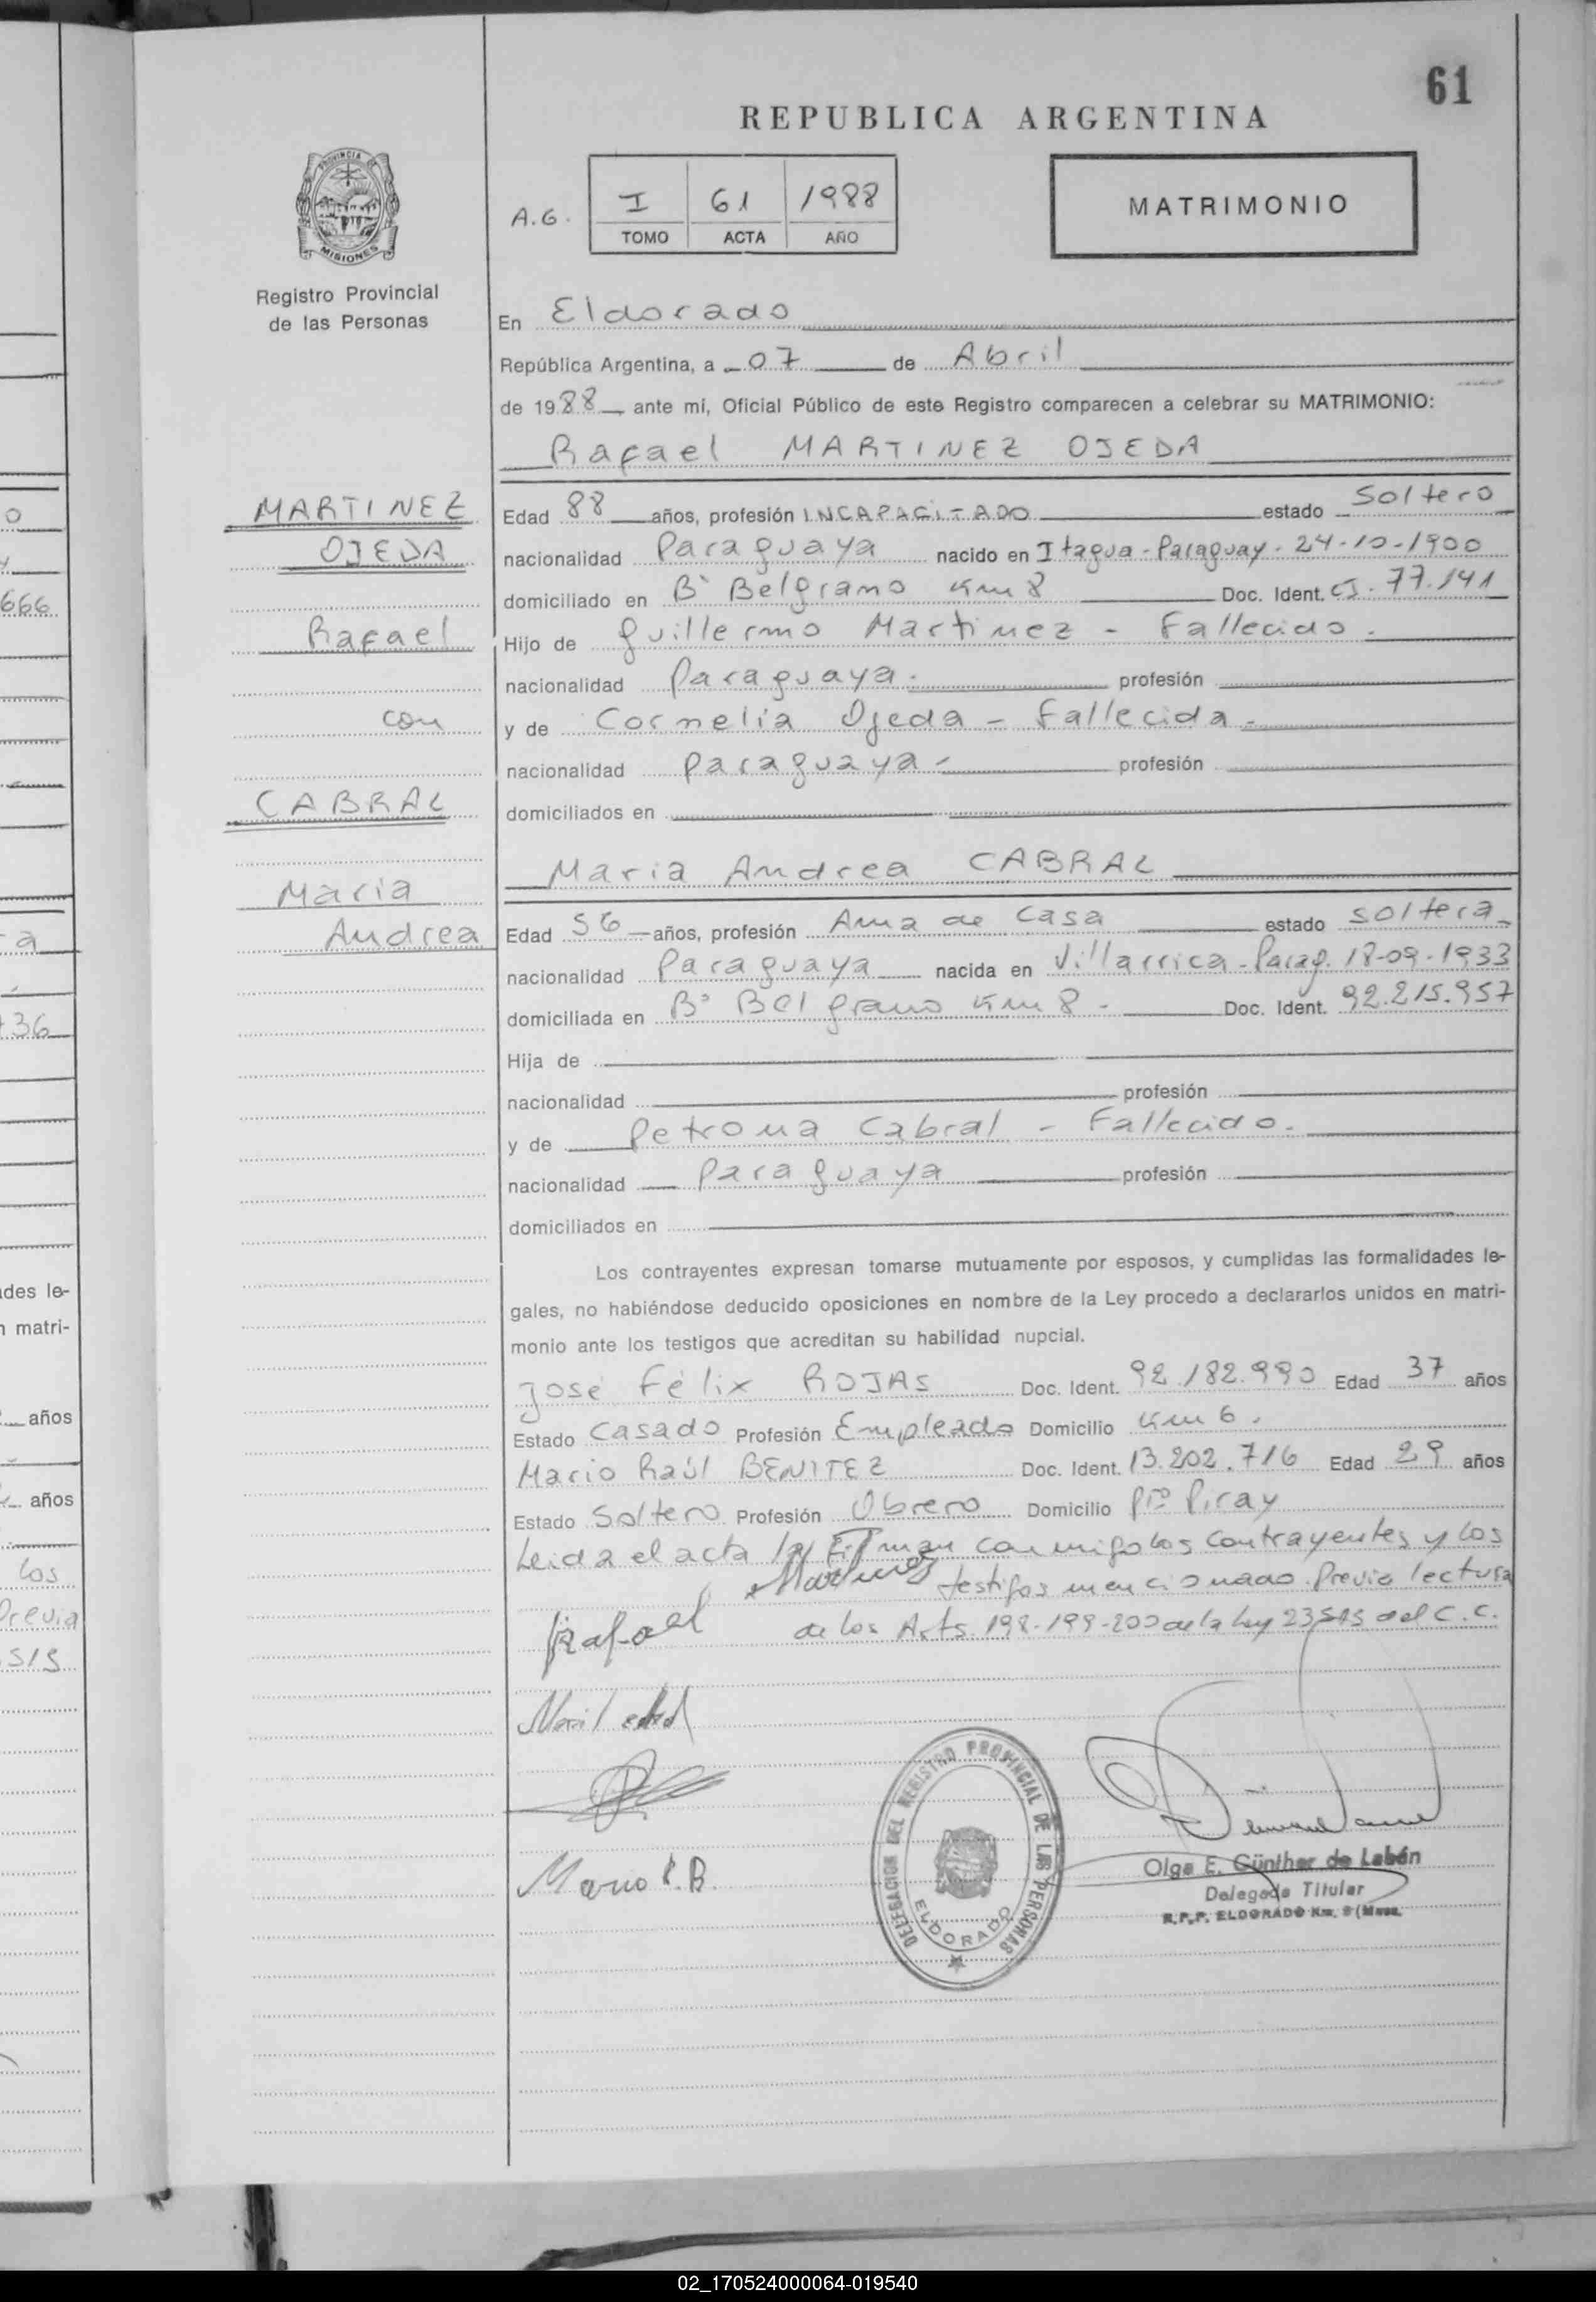 61
REPUBLICA ARGENTINA
A.G. I 61 1988
TOMO ACTA AÑO
MATRIMONIO
PROVINCIA DE
MISIONES
Registro Provincial
de las Personas
En Eldorado
República Argentina, a 07 de Abril
de 1988 ante mi, Oficial Público de este Registro comparecen a celebrar su MATRIMONIO:
Rafael MARTINEZ OJEDA
MARTINEZ
OJEDA
Rafael
con
CABRAL
Maria
Andrea
Edad 88 años, profesión INCAPACITADO estado Soltero
nacionalidad Paraguaya nacido en Itagua - Paraguay - 24-10-1900
domiciliado en B° Belgrano Km 8 Doc. Ident. CI. 77.141
Hijo de Guillermo Martinez - Fallecido.
nacionalidad Paraguaya. profesión
y de Cornelia Ojeda - Fallecida -
nacionalidad Paraguaya - profesión
domiciliados en
Maria Andrea CABRAL
Edad 56 años, profesión Ama de Casa estado soltera
nacionalidad Paraguaya nacida en Villarrica - Parag. 18-09-1933
domiciliada en B° Belgrano Km 8 - Doc. Ident. 92.215.957
Hija de
nacionalidad profesión
y de Petrona Cabral - Fallecido.
nacionalidad Paraguaya profesión
domiciliados en
Los contrayentes expresan tomarse mutuamente por esposos, y cumplidas las formalidades le-
gales, no habiéndose deducido oposiciones en nombre de la Ley procedo a declararlos unidos en matri-
monio ante los testigos que acreditan su habilidad nupcial.
José Félix ROJAS Doc. Ident. 92.182.990 Edad 37 años
Estado Casado Profesión Empleado Domicilio Km 6.
Mario Raúl BENITEZ Doc. Ident. 13.202.716 Edad 29 años
Estado Soltero Profesión Obrero Domicilio Pto Piray
Leida el acta la Firman conmigo los contrayentes y los
testigos mencionado. Previa lectura
de los Arts. 198-199-200 de la Ley 23515 del C.C.
Rafael Martinez
Mario R.B.
DELEGACION DEL REGISTRO PROVINCIAL DE LAS PERSONAS
ELDORADO
Olga E. Günther de Labán
Delegada Titular
R.P.P. ELDORADO Km. 8 (Mnes.
o
666
a
36
ades le-
matri-
años
años
los
Previa
515
02_170524000064-019540